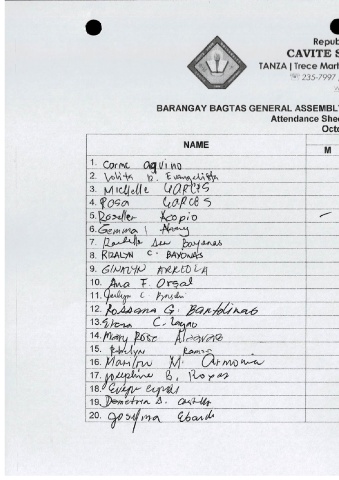 Repub
CAVITE S
TANZA | Trece Mart
235-7997
BARANGAY BAGTAS GENERAL ASSEMBL
Attendance Shee
Octo
NAME
M
1. Corme aquino
2. Lolita D. Evangelista
3. Michelle GARCES
4. Rosa GARCES
5. Roseller Acopio
6. Gemma
7. Bayonas
8. RIZALYN C. BAYONAS
9. GINALYN ARREOLA
10. Ana F. Orgal
11.
12. Rossana G. Bartolinao
13. C.
14. Mary Rose
15.
16. Marilou M. Armonia
17. Josephine B. Royas
18.
19. Demetria D. Castillo
20. Josefina Ebarde